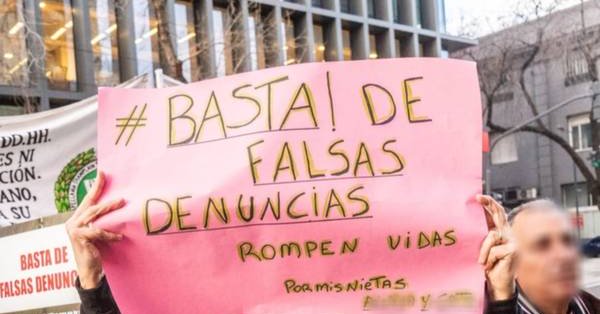 # BASTA! DE
FALSAS
DENUNCIAS
ROMPEN VIDAS
POR MIS NIETAS
Y
DD.HH.
ES NI
CIÓN.
ANO,
A SU
BASTA DE
FALSAS DENUNC